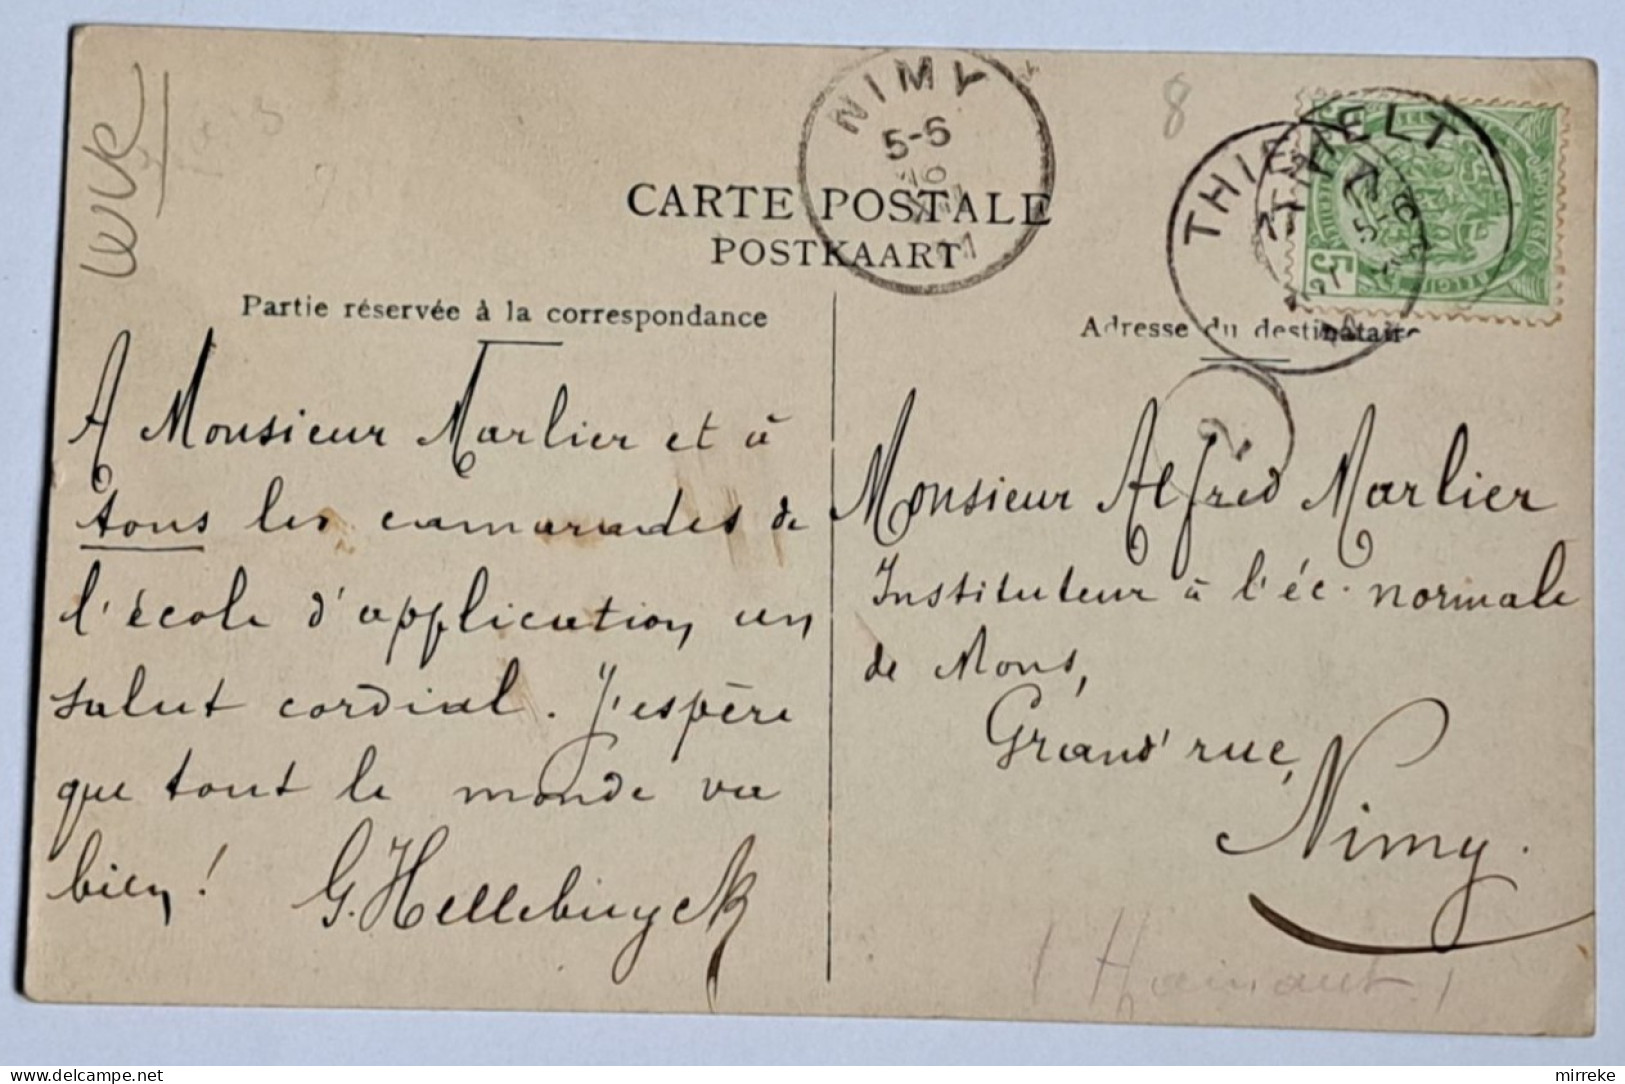 WVK
8
NIMY
5-6
CARTE POSTALE
POSTKAART
THIELT
THIELT
5
Partie réservée à la correspondance
A Monsieur Marlier et à
tous les camarades de
l'école d'application, un
salut cordial. J'espère
que tout le monde va
bien!
G. Hellebuyck
Adresse du destinataire
2
Monsieur Alfred Marlier
Instituteur à l'éc. normale
de Mons,
Grand'rue,
Nimy.
(Hainaut)
delcampe.net
mirreke